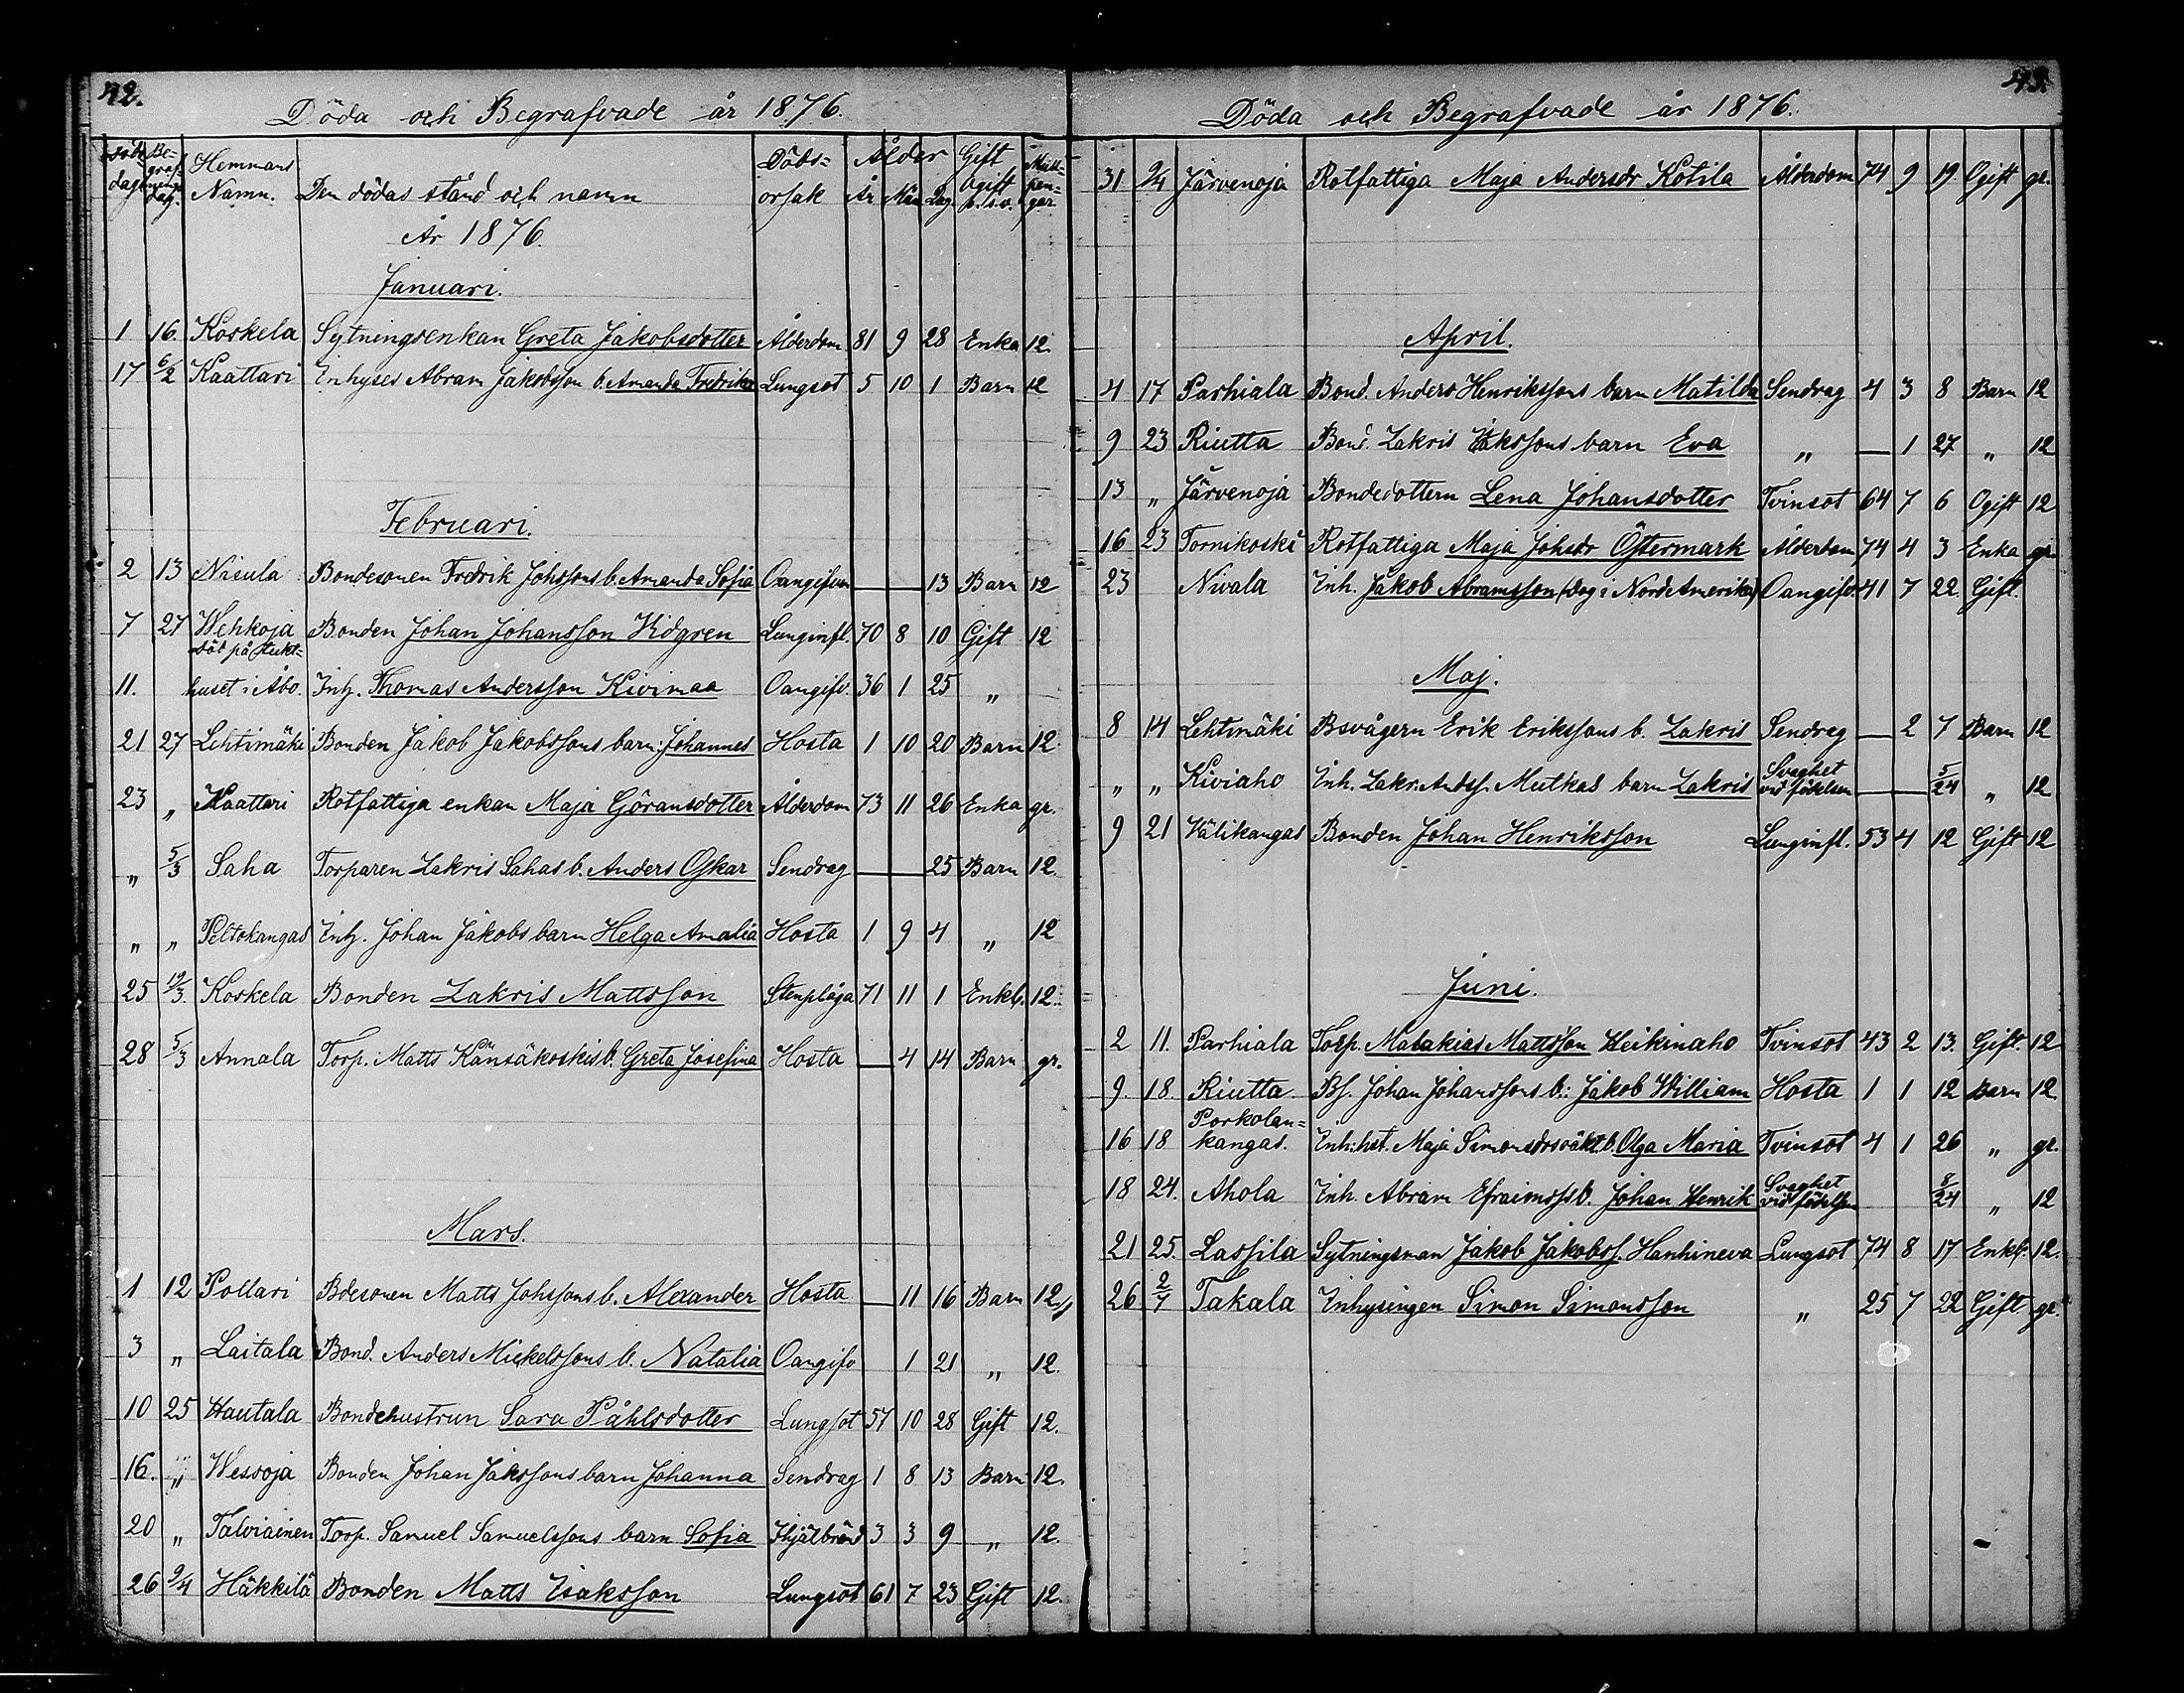 42.
Döda och Begrafvade år 1876.
Död dag Begrafnings dag. Hemmans Namn. Den dödas stånd och namn Dödsorsak Ålder År Mån Dag. Gift Ogift o.s.v. gar.
År 1876.
Januari.
1 16. Koskela Sytningsenkan Greta Jakobsdotter Ålderdom 81 9 28 Enka 12.
17 6/2 Kaattari Inhyses Abram Jakobsson b. Amanda Fredrika Lungsot 5 10 1 Barn 12
Februari.
2 13 Nisula Bondesonen Fredrik Johssons b. Amanda Sofia Oangifven — 13 Barn 12
7 27 Wehkoja Bonden Johan Johansson Widgren Lunginfl. 70 8 10 Gift 12
död på Tukt=
11. huset i Åbo. Inh. Thomas Andersson Kivimaa Oangifv. 36 1 25 "
21 27 Lehtimäki Bonden Jakob Jakobssons barn: Johannes Hosta 1 10 20 Barn 12
23 " Kaattari Rotfattiga enkan Maja Göransdotter Ålderdom 73 11 26 Enka gr.
" 5/3 Saha Torparen Zakris Sahas b. Anders Oskar Sendrag — 25 Barn 12.
" " Peltokangas Inh. Johan Jakobs barn Helga Amalia Hosta 1 9 4 " 12
25 19/3. Koskela Bonden Zakris Mattsson Stenplåga 71 11 1 Enkl. 12.
28 5/3 Annala Torp. Matts Känsäkoskis b. Greta Josefina Hosta — 4 14 Barn gr.
Mars.
1 12 Pollari Bdesonen Matts Johssons b. Alexander Hosta — 11 16 Barn 12
3 " Laitala Bond. Anders Mickelssons b. Natalia Oangifv 1 21 " 12.
10 25 Hautala Bondehustrun Sara Påhlsdotter Lungsot 57 10 28 Gift 12.
16. " Wessoja Bonden Johan Jakssons barn Johanna Sendrag 1 8 13 Barn 12.
20 " Talviainen Torp. Samuel Samuelssons barn Sofia Ihjälbränd 3 3 9 " 12.
26 9/4 Häkkilä Bonden Matts Isaksson Lungsot 61 7 23 Gift 12.
43.
Döda och Begrafvade år 1876.
31 2/4 Järvenoja Rotfattiga Maja Andersdr Kotila Ålderdom 74 9 19 Ogift gr.
April.
4 17 Parhiala Bond. Anders Henrikssons barn Matilda Sendrag 4 3 8 Barn 12
9 23 Riutta Bond. Zakris Isakssons barn Eva " — 1 27 " 12
13 " Järvenoja Bondedottern Lena Johansdotter Tvinsot 64 7 6 Ogift 12
16 23 Tornikoski Rotfattiga Maja Johsdr Östermark Ålderdom 74 4 3 Enka gr.
23 Nivala Inh. Jakob Abramsson (dog i Nord Amerika) Oangifv. 41 7 22 Gift.
Maj.
8 14 Lehtimäki Bsvågern Erik Erikssons b. Zakris Sendrag — 2 7 Barn 12
" " Kiviaho Inh. Zakr. Andss. Mutkas barn Zakris Svaghet vid födelsen — 5/24 " 12
9 21 Välikangas Bonden Johan Henriksson Lunginfl. 53 4 12 Gift 12
Juni.
2 11. Parhiala Torp. Malakias Mattsson Heikinaho Tvinsot 43 2 13. Gift. 12
9. 18. Riutta Bs. Johan Johanssons b.: Jakob William Hosta 1 1 12 Barn 12
16 18 Porkolan=kangas. Inh:hst. Maja Simonsdrs oäkt. b. Olga Maria Tvinsot 4 1 26 " gr.
18 24. Ahola Inh. Abram Efraimss b. Johan Henrik Svaghet vid födelsen 8/24 " 12
21 25. Lassila Sytningsman Jakob Jakobss. Hanhineva Lungsot 74 8 17 Enkl. 12.
26 2/7 Takala Inhysingen Simon Simonsson " 25 7 22 Gift. gr.